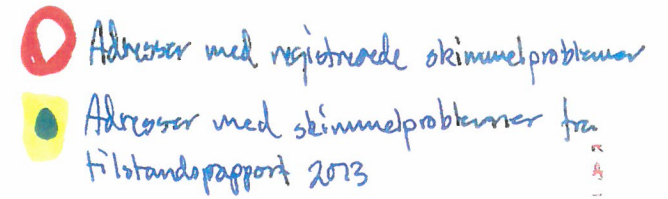 Adresser med registrerede skimmelproblemer
Adresser med skimmelproblemer fra
tilstandsrapport 2013